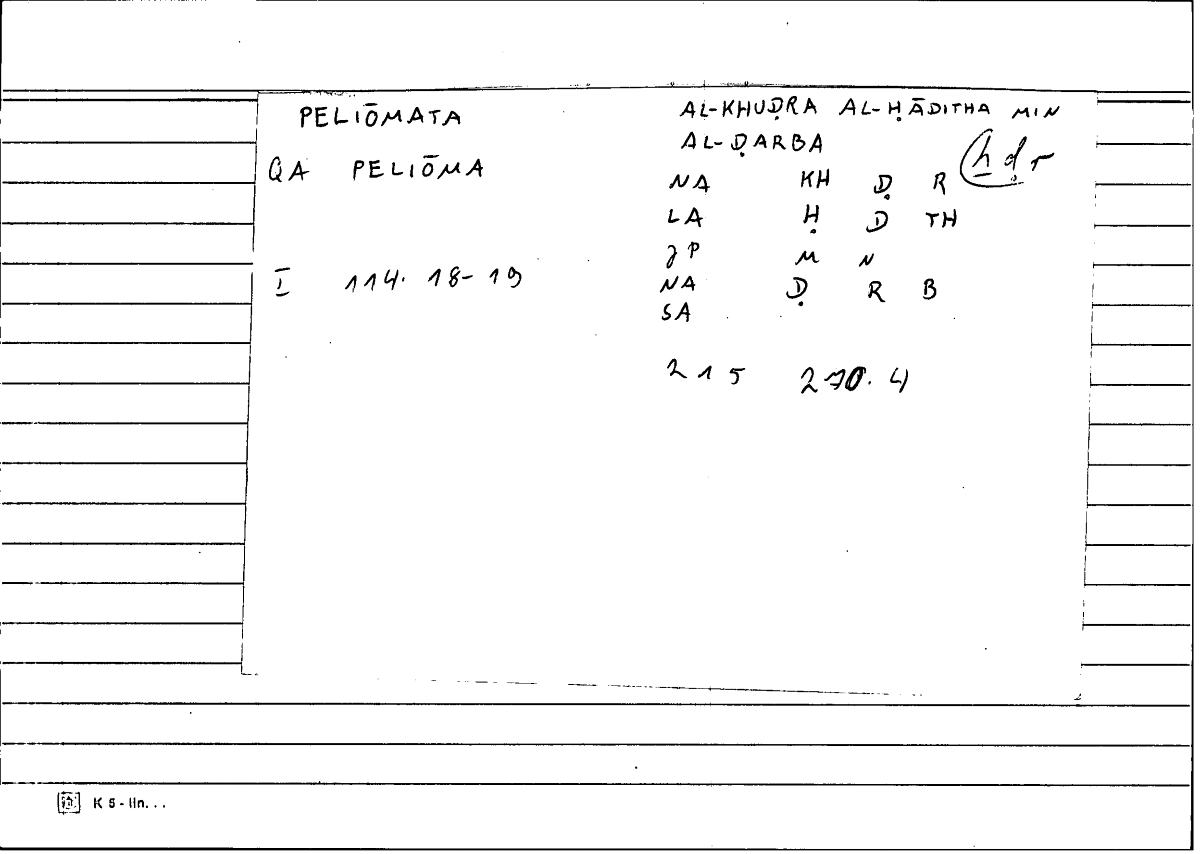 PELIŌMATA
QA PELIŌMA
I 114. 18-19
AL-KHUḌRA AL-ḤĀDITHA MIN
AL-ḌARBA
ḫḍr
NA KH Ḍ R
LA Ḥ D TH
JP M N
NA Ḍ R B
SA
215 270. 4
K 5 - lin...